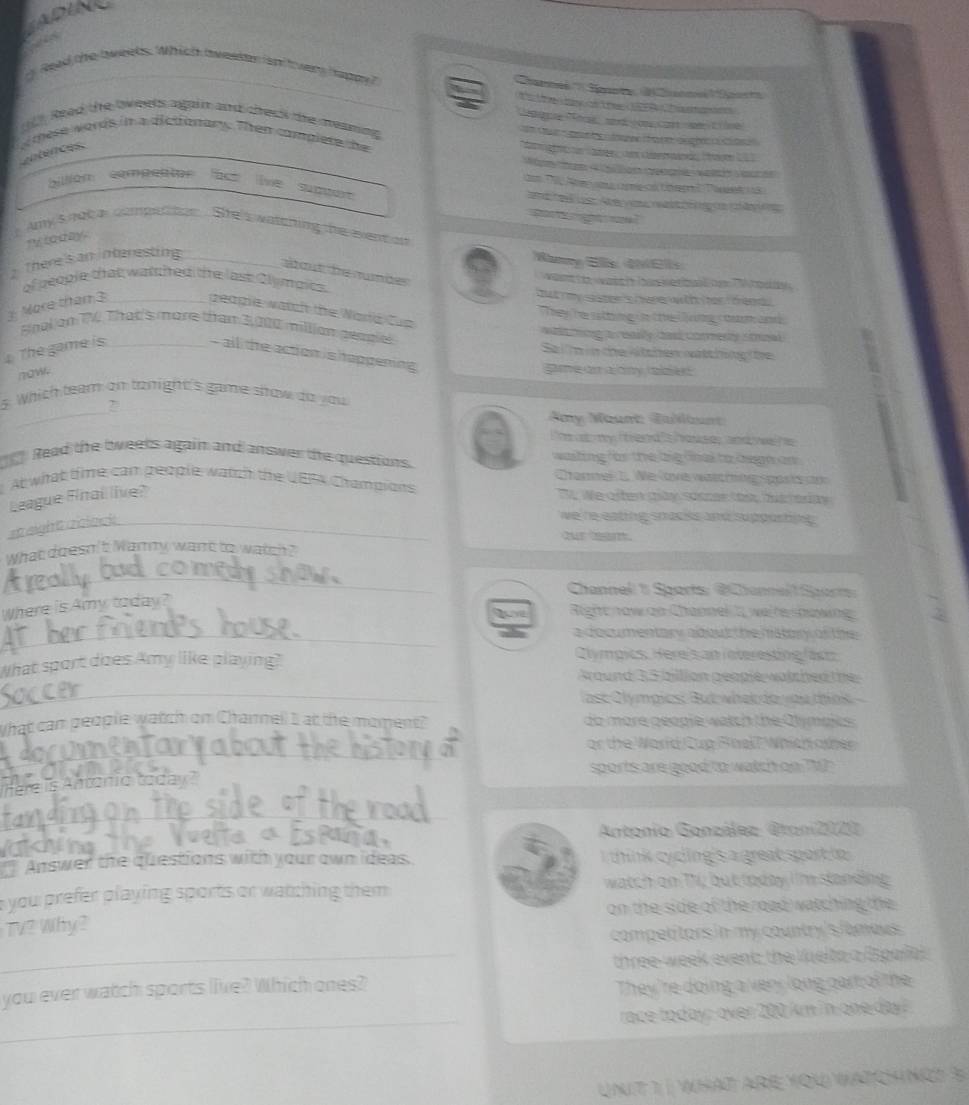 READING
Read the tweets. Which tweeter isn't very happy?
Read the tweets again and check the meaning
of these words in a dictionary. Then complete the
sentences.
billion competitor fact live support
1 Amy's not a competitor. She's watching the event on
TV today.
2 There's an interesting about the number
of people that watched the last Olympics.
3 More than 3 people watch the World Cup
Final on TV. That's more than 3,000 million people!
4 The game is – all the action is happening
now.
5 Which team on tonight's game show do you
?
Read the tweets again and answer the questions.
At what time can people watch the UEFA Champions
League Final live?
at eight o'clock
What doesn't Manny want to watch?
A really bad comedy show.
Where is Amy today?
At her friend's house.
What sport does Amy like playing?
Soccer
What can people watch on Channel 1 at the moment?
A documentary about the history of
the Olympics.
Where is Antonio today?
tanding on the side of the road
Watching the Vuelta a España.
Answer the questions with your own ideas.
you prefer playing sports or watching them
TV? Why?
you ever watch sports live? Which ones?
Channel 1 Sports @Channel1Sports
It's the day of the UEFA Champions
League Final, and you can see it live
on our sports show from eight o'clock
and tell us! Are you watching or playing
sports right now?
Manny Ellis
I want to watch basketball on TV today,
but my sister's here with her friends.
They're sitting in the living room and
watching a really bad comedy show!
So I'm in the kitchen watching the
game on a tiny tablet!
Amy Mount
I'm at my friend's house, and we're
waiting for the big final to begin on
Channel 1. We love watching sports on
TV. We often play soccer too, but today
we're eating snacks and supporting
our team.
Channel 1 Sports @Channel1Sports
LIVE
Right now on Channel 1, we're showing
a documentary about the history of the
Olympics. Here's an interesting fact:
Around 3.5 billion people watched the
last Olympics. But what do you think –
do more people watch the Olympics
or the World Cup Final? Which other
sports are good to watch on TV?
Antonio González @toni2020
I think cycling's a great sport to
watch on TV, but today I'm standing
on the side of the road, watching the
competitors in my country's famous
three-week event: the Vuelta a España!
They're doing a very long part of the
race today: over 200 km in one day!
UNIT 1 | WHAT ARE YOU WATCHING?